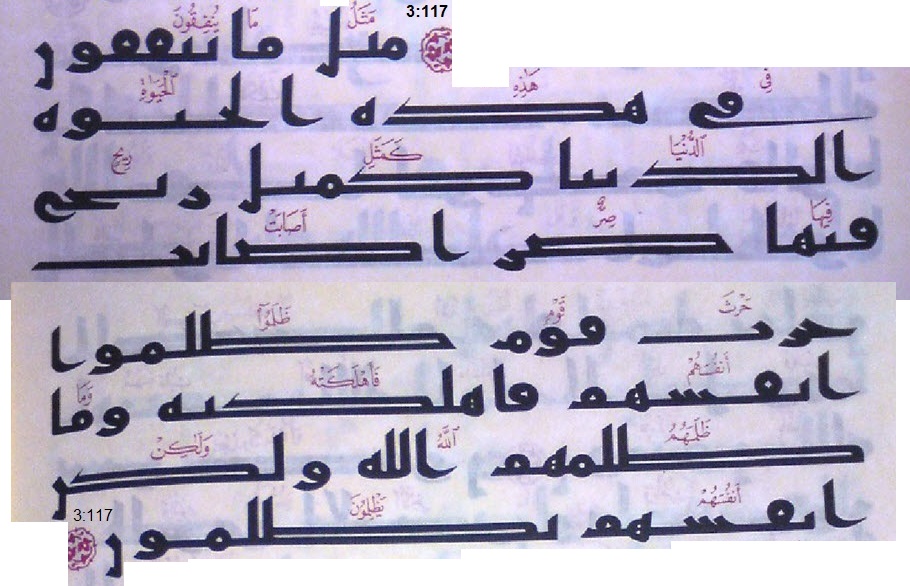 3:117
مَثَلُ مَا يُنفِقُونَ
مثل ما ينفقون
فِي هَٰذِهِ ٱلْحَيَوٰةِ
في هذه الحيوة
ٱلدُّنْيَا كَمَثَلِ رِيحٍ
الدنيا كمثل ريح
فِيهَا صِرٌّ أَصَابَتْ
فيها صر اصابت
حَرْثَ قَوْمٍ ظَلَمُوٓا۟
حرث قوم ظلموا
أَنفُسَهُمْ فَأَهْلَكَتْهُ وَمَا
انفسهم فاهلكته وما
ظَلَمَهُمُ ٱللَّهُ وَلَٰكِنْ
ظلمهم الله ولكن
أَنفُسَهُمْ يَظْلِمُونَ
انفسهم يظلمون
3:117